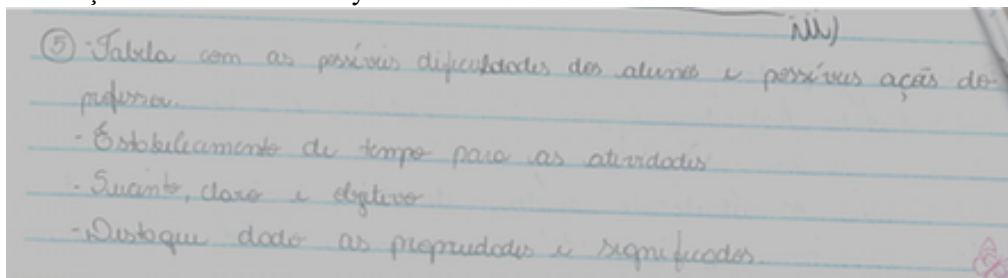 iii)
⑤ - Tabela com as possíveis dificuldades dos alunos e possíveis ações do
professor.
- Estabelecimento de tempo para as atividades
- Sucinto, claro e objetivo
- Destaque dado as propriedades e significados.